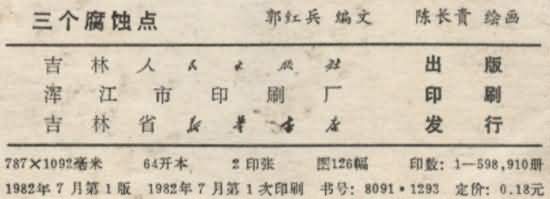 三个腐蚀点 郭红兵 编文 陈长贵 绘画
吉林人民出版社 出版
浑江市印刷厂 印刷
吉林省新华书店 发行
787×1092毫米 64开本 2印张 图126幅 印数：1—598,910册
1982年7月第1版 1982年7月第1次印刷 书号：8091·1293 定价：0.18元